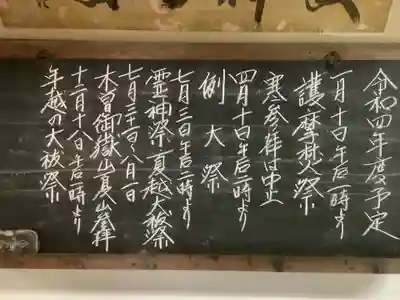 令和四年度予定
一月十日午后一時より
護摩焚祭
寒参拝は中止
四月十日午后一時より
例大祭
七月三日午后一時より
霊神祭夏越大祓祭
七月三十一日〜八月一日
木曽御嶽山夏山登拝
十二月十八日午后一時より
年越の大祓祭